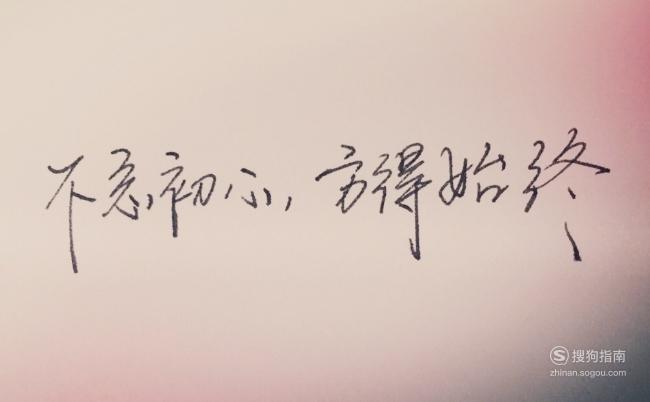 不忘初心，方得始终
搜狗指南
zhinan.sogou.com